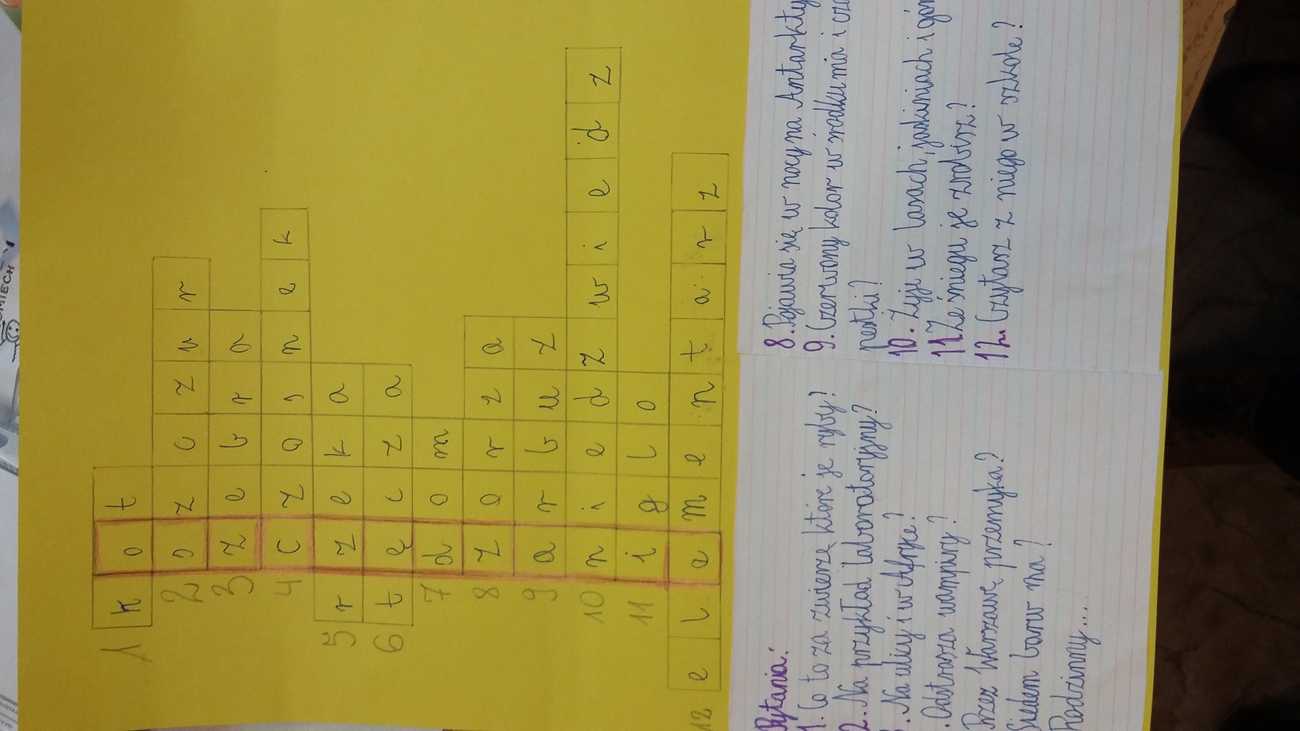 1 kot
2 szczur
3 zebra
4 czosnek
5 rzeka
6 tęcza
7 dom
8 zorza
9 arbuz
10 niedzwiedz
11 iglo
12 elementarz
Pytania:
1. Co to za zwierzę które je ryby?
2. Na przykład laboratoryjny?
. Na ulicy i w Afryce?
. Odstrasza wampiry?
Przez Warszawę przemyka?
Siedem barw ma?
Rodzinny....
8. Pojawia się w nocy na Antarkty
9. Czerwony kolor w środku ma i cza
pestki?
10. Żyje w lasach, jaskiniach i gór
11. Ze śniegu je zrobisz?
12. Czytasz z niego w szkole?